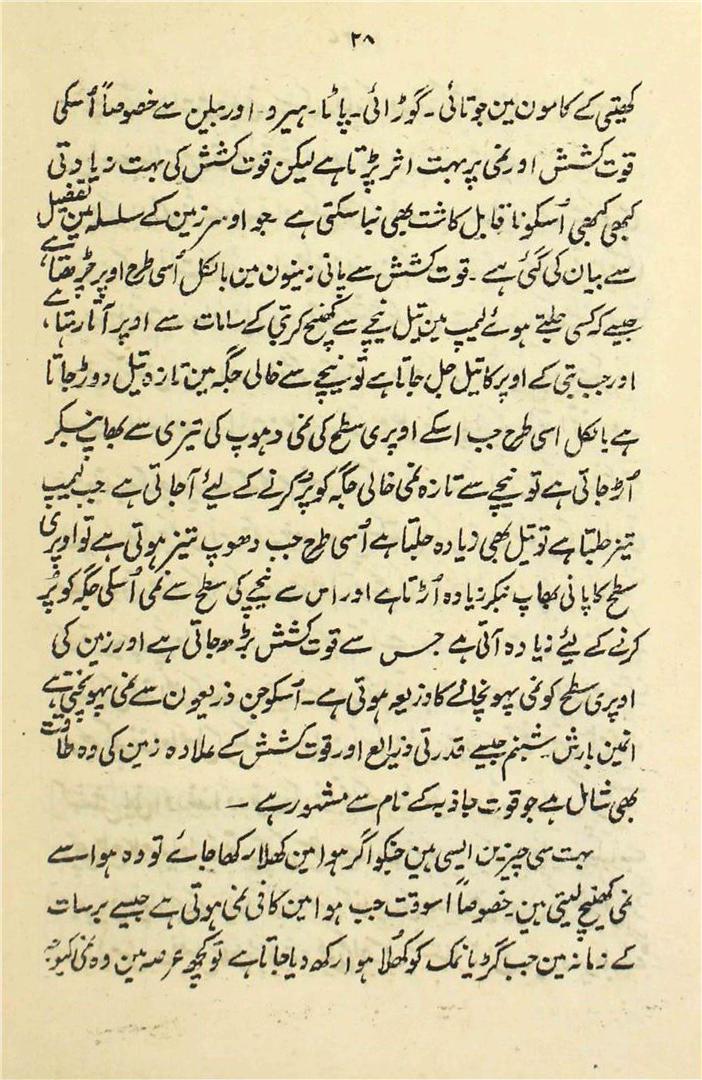 ۲۸
کھیتی کے کامون مین جوتائی۔ گوڑائی۔ پاٹا۔ ہیرو۔ اور بیلن سے خصوصاً اُسکی
قوت کشش اور نمی پر بہت اثر پڑتا ہے لیکن قوت کشش کی بہت زیادتی
کبھی کبھی اُسکو ناقابل کاشت بھی بنا سکتی ہے۔ جو اوسر زمین کے سلسلہ مین تفصیل
سے بیان کی گئی ہے۔ قوت کشش سے پانی زمینون مین بالکل اُسی طرح اوپر چڑھتا ہے
جیسے کہ کسی جلتے ہوئے لیمپ مین تیل نیچے سے کھنچ کر بتی کے سامات سے اوپر آتا رہتا ہے
اور جب بتی کے اوپر کا تیل جل جاتا ہے تو نیچے سے خالی جگہ مین تازہ تیل دوڑ جاتا
ہے بالکل اسی طرح جب اسکے اوپری سطح کی نمی دہوپ کی تیزی سے بھاپ بنکر
اُڑ جاتی ہے تو نیچے سے تازہ نمی خالی جگہ کو پُر کرنے کے لیئے آجاتی ہے۔ جب لیمپ
تیز جلتا ہے تو تیل بھی زیادہ جلتا ہے اُسی طرح جب دھوپ تیز ہوتی ہے تو اوپری
سطح کا پانی بھاپ بنکر زیادہ اُڑتا ہے اور اس سے نیچے کی سطح سے نمی اُسکی جگہ کو پُر
کرنے کے لیئے زیادہ آتی ہے جس سے قوت کشش بڑھ جاتی ہے اور زمین کی
اوپری سطح کو نمی پہونچانے کا ذریعہ ہوتی ہے۔ اُسکو جن ذریعون سے نمی پہونچتی ہے
انمین بارش شبنم جیسے قدرتی ذرایع اور قوت کشش کے علاوہ زمین کی وہ طاقت
بھی شامل ہے جو قوت جاذبہ کے نام سے مشہور ہے۔
بہت سی چیزین ایسی ہین جنکو اگر ہوا مین کھلا رکھا جائے تو وہ ہوا سے
نمی کھینچ لیتی ہین۔ خصوصاً اسوقت جب ہوا مین کافی نمی ہوتی ہے جیسے برسات
کے زمانہ مین جب گڑ یا نمک کو کھُلا ہوا رکھ دیا جاتا ہے تو کچھ عرصہ مین وہ نمی کیوجہ